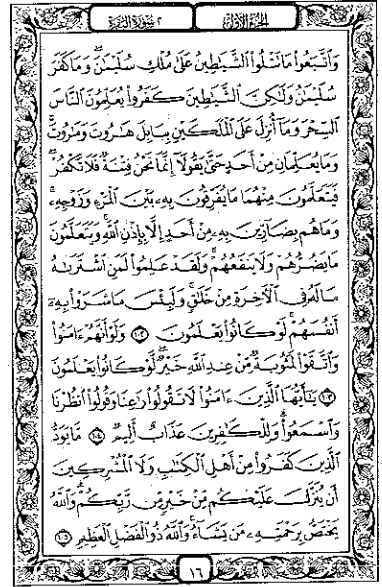 الجزء الأول
٢ سورة البقرة
وَٱتَّبَعُوا۟ مَا تَتْلُوا۟ ٱلشَّيَٰطِينُ عَلَىٰ مُلْكِ سُلَيْمَٰنَ ۖ وَمَا كَفَرَ
سُلَيْمَٰنُ وَلَٰكِنَّ ٱلشَّيَٰطِينَ كَفَرُوا۟ يُعَلِّمُونَ ٱلنَّاسَ
ٱلسِّحْرَ وَمَآ أُنزِلَ عَلَى ٱلْمَلَكَيْنِ بِبَابِلَ هَٰرُوتَ وَمَٰرُوتَ ۚ
وَمَا يُعَلِّمَانِ مِنْ أَحَدٍ حَتَّىٰ يَقُولَآ إِنَّمَا نَحْنُ فِتْنَةٌ فَلَا تَكْفُرْ ۖ
فَيَتَعَلَّمُونَ مِنْهُمَا مَا يُفَرِّقُونَ بِهِۦ بَيْنَ ٱلْمَرْءِ وَزَوْجِهِۦ ۚ
وَمَا هُم بِضَآرِّينَ بِهِۦ مِنْ أَحَدٍ إِلَّا بِإِذْنِ ٱللَّهِ ۚ وَيَتَعَلَّمُونَ
مَا يَضُرُّهُمْ وَلَا يَنفَعُهُمْ ۚ وَلَقَدْ عَلِمُوا۟ لَمَنِ ٱشْتَرَىٰهُ
مَا لَهُۥ فِى ٱلْءَاخِرَةِ مِنْ خَلَٰقٍ ۚ وَلَبِئْسَ مَا شَرَوْا۟ بِهِۦٓ
أَنفُسَهُمْ ۚ لَوْ كَانُوا۟ يَعْلَمُونَ ١٠٢ وَلَوْ أَنَّهُمْ ءَامَنُوا۟
وَٱتَّقَوْا۟ لَمَثُوبَةٌ مِّنْ عِندِ ٱللَّهِ خَيْرٌ ۖ لَّوْ كَانُوا۟ يَعْلَمُونَ
١٠٣ يَٰٓأَيُّهَا ٱلَّذِينَ ءَامَنُوا۟ لَا تَقُولُوا۟ رَٰعِنَا وَقُولُوا۟ ٱنظُرْنَا
وَٱسْمَعُوا۟ ۗ وَلِلْكَٰفِرِينَ عَذَابٌ أَلِيمٌ ١٠٤ مَّا يَوَدُّ
ٱلَّذِينَ كَفَرُوا۟ مِنْ أَهْلِ ٱلْكِتَٰبِ وَلَا ٱلْمُشْرِكِينَ
أَن يُنَزَّلَ عَلَيْكُم مِّنْ خَيْرٍ مِّن رَّبِّكُمْ ۗ وَٱللَّهُ
يَخْتَصُّ بِرَحْمَتِهِۦ مَن يَشَآءُ ۚ وَٱللَّهُ ذُو ٱلْفَضْلِ ٱلْعَظِيمِ ١٠٥
١٦